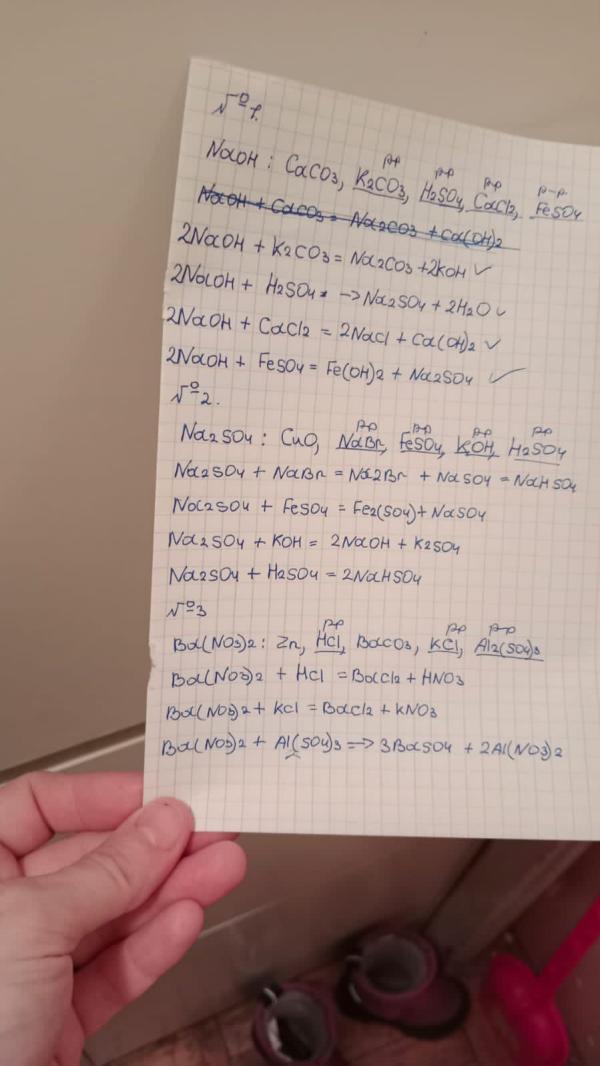 №1.
NaOH : CaCO3, K2CO3, H2SO4, CaCl2, FeSO4
р-р р-р р-р р-р
NaOH + CaCO3 = Na2CO3 + Ca(OH)2
2NaOH + K2CO3 = Na2CO3 + 2KOH ✓
2NaOH + H2SO4 → Na2SO4 + 2H2O ✓
2NaOH + CaCl2 = 2NaCl + Ca(OH)2 ✓
2NaOH + FeSO4 = Fe(OH)2 + Na2SO4 ✓
№2.
р-р р-р р-р р-р
Na2SO4 : CuO, NaBr, FeSO4, KOH, H2SO4
Na2SO4 + NaBr = Na2Br + NaSO4 = NaHSO4
Na2SO4 + FeSO4 = Fe2(SO4) + NaSO4
Na2SO4 + KOH = 2NaOH + K2SO4
Na2SO4 + H2SO4 = 2NaHSO4
№3
р-р р-р р-р
Ba(NO3)2 : Zn, HCl, BaCO3, KCl, Al2(SO4)3
Ba(NO3)2 + HCl = BaCl2 + HNO3
Ba(NO3)2 + KCl = BaCl2 + KNO3
Ba(NO3)2 + Al(SO4)3 => 3BaSO4 + 2Al(NO3)2